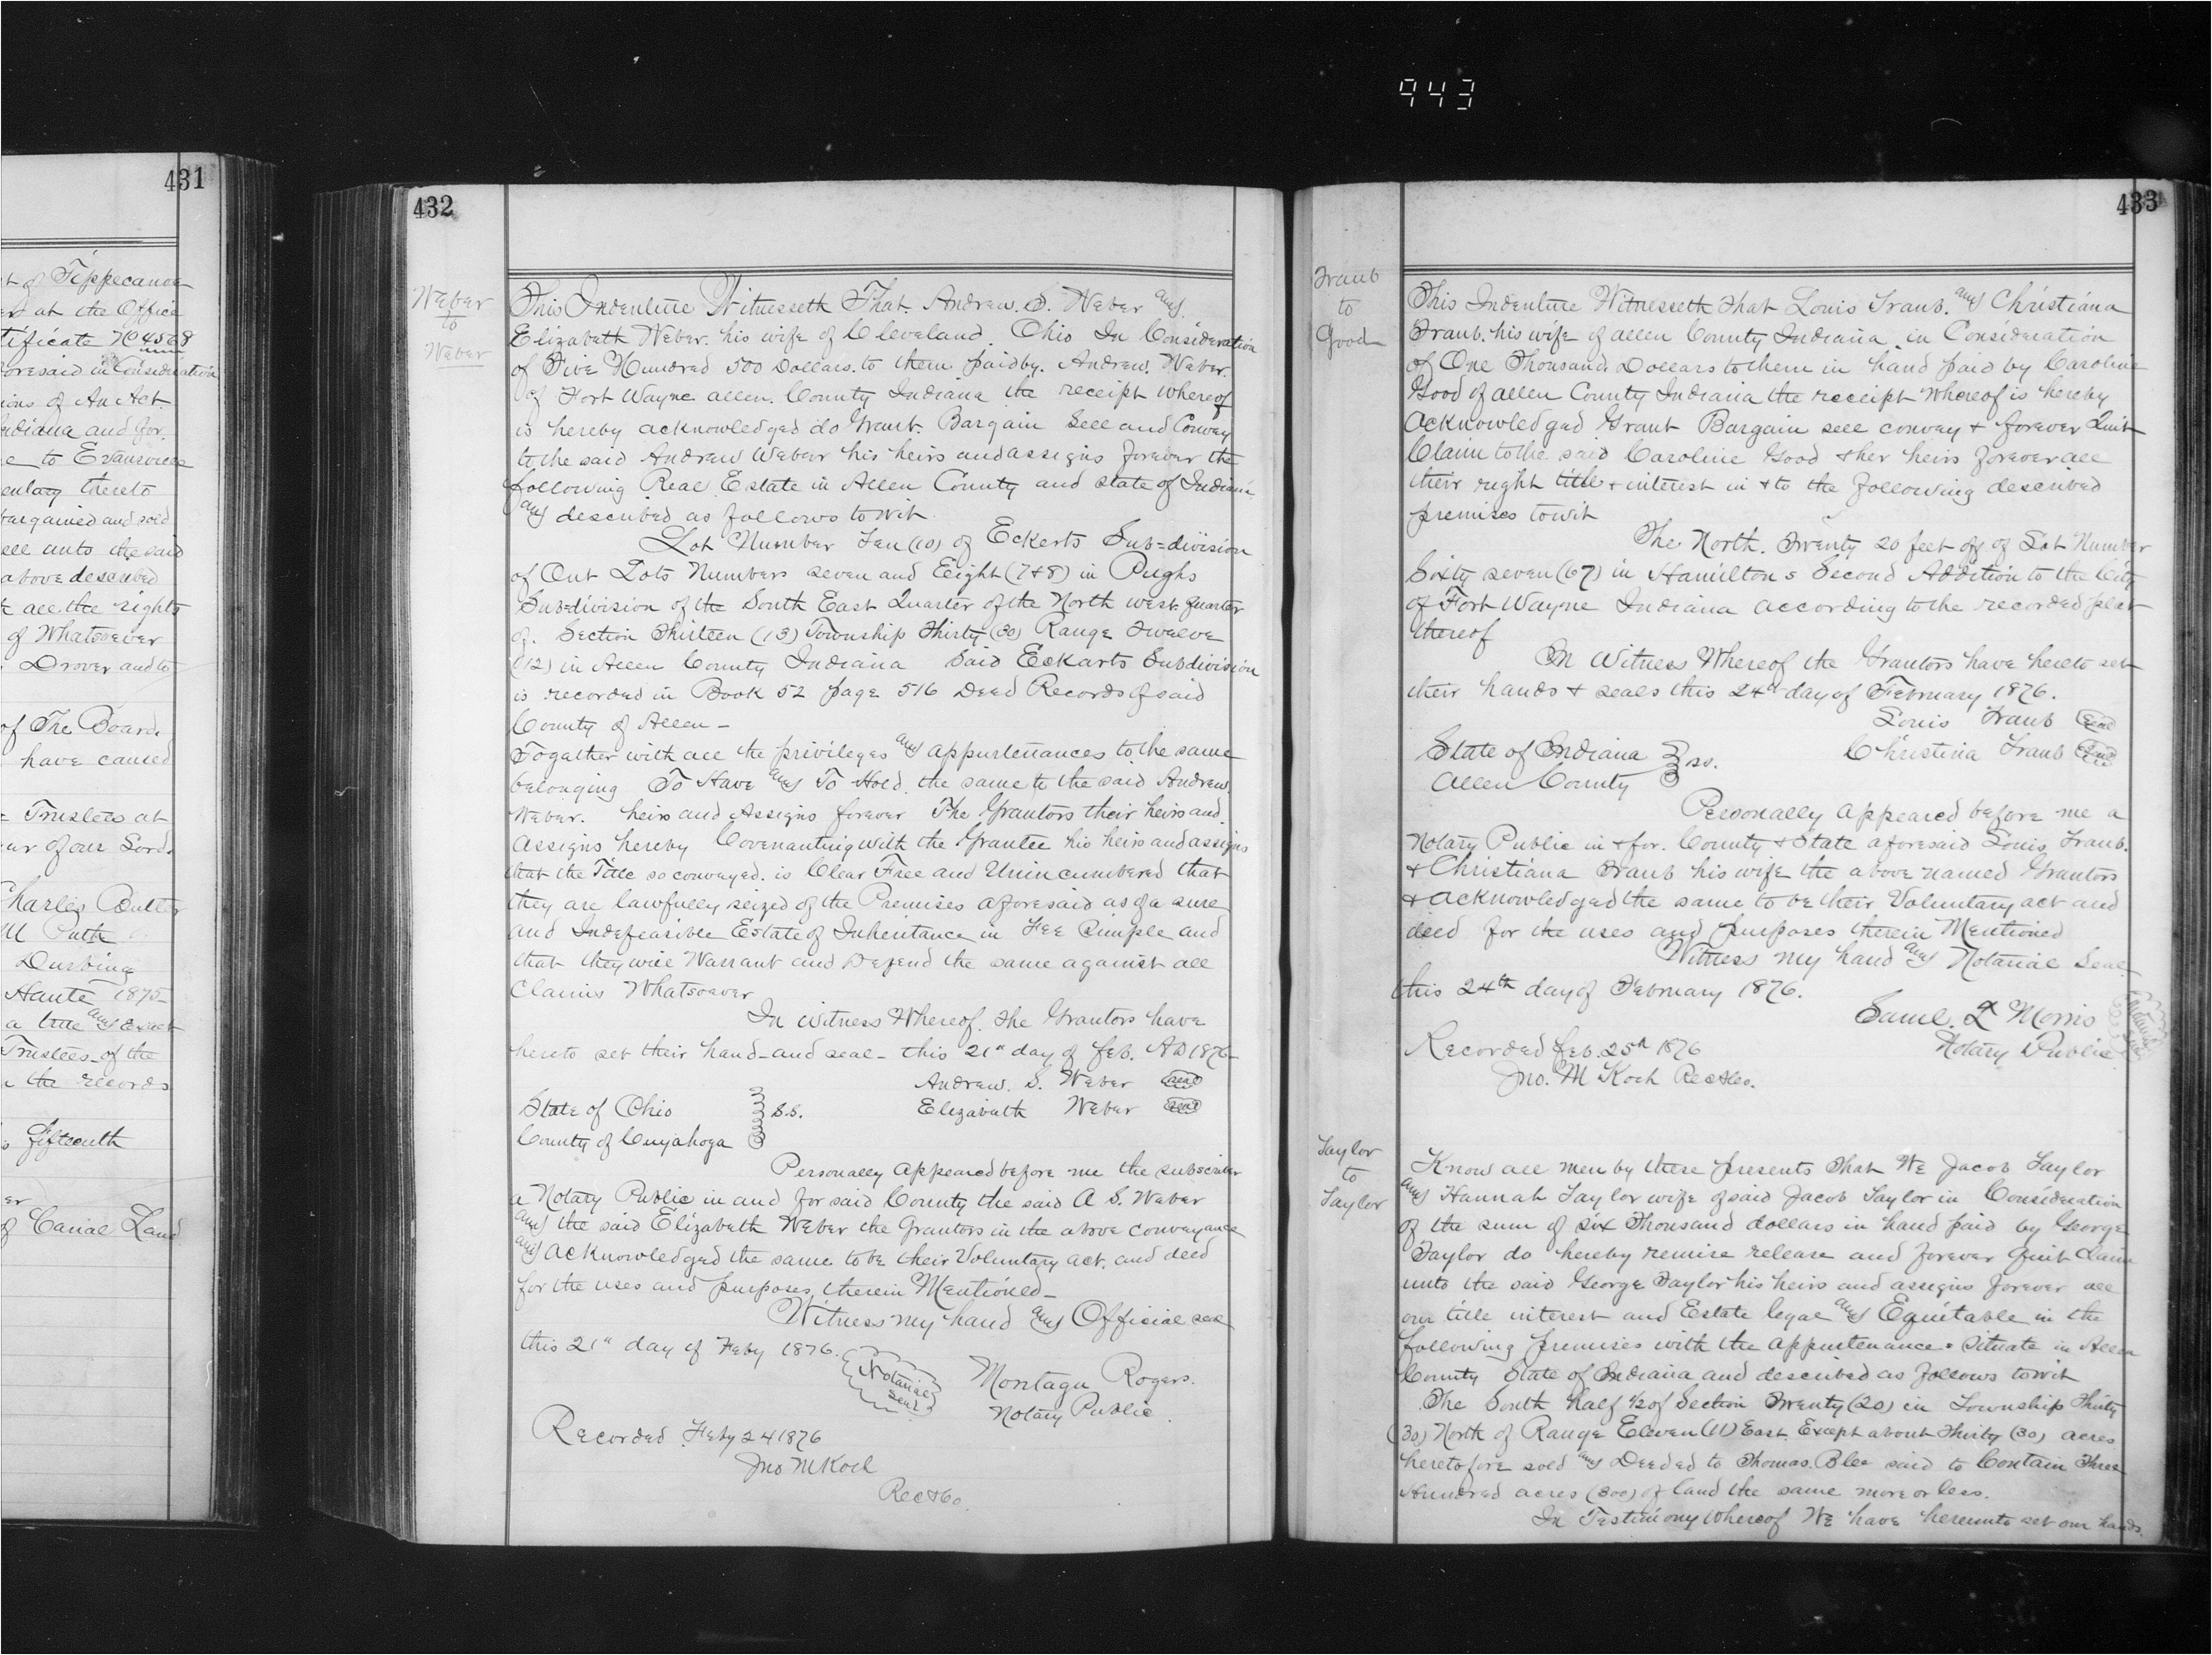 943
431
t of Tippecanoe
er at the Office
tificate No 4568
oresaid in Consideration
ions of An Act
ndiana and for
e to Evansville
entary thereto
bargained and sold
ell unto the said
above described
all the rights
of Whatsoever
Drover and to
of The Board
have caused
Trustees at
ar of our Lord
Charles Butler
M Puth
Durbing
Haute 1875
a true and Exact
Trustees of the
the records
fifteenth
er
of Canal Land
432
Weber
to
Weber
This Indenture Witnesseth That Andrew. S. Weber and
Elizabeth Weber his wife of Cleveland. Ohio In Consideration
of Five Hundred 500 Dollars. to them paid by. Andrew. Weber.
of Fort Wayne allen. County Indiana the receipt Whereof
is hereby acknowledged do Grant. Bargain Sell and Convey
to the said Andrew Weber his heirs and assigns forever the
following Real Estate in Allen County and state of Indiana
and described as follows to wit
Lot Number Ten (10) of Eckerts Sub=division
of Out Lots Numbers seven and Eight (7&8) in Pughs
Sub=division of the South East Quarter of the North west quarter
of. Section Thirteen (13) Township Thirty (30) Range Twelve
(12) in Allen County Indiana Said Eckarts Subdivision
is recorded in Book 52 page 516 Deed Records of said
County of Allen—
Together with all the privileges and appurtenances to the same
belonging To Have and To Hold. the same to the said Andrew.
Weber. heirs and Assigns forever The Grantors their heirs and
Assigns hereby Covenanting with the Grantee his heirs and assigns
that the Title so conveyed. is Clear Free and Unincumbered that
they are lawfully seized of the Premises aforesaid as of a sure
and Indefeasible Estate of Inheritance in Fee Simple and
that they will Warrant and Defend the same against all
Claims Whatsoever
In Witness Whereof. the Grantors have
hereto set their hand— and seal— this 21st day of feb. AD 1876—
Andrew. S. Weber seal
State of Ohio S.S. Elizabeth Weber seal
County of Cuyahoga
Personally Appeared before me the subscriber
a Notary Public in and for said County the said A S. Weber
and the said Elizabeth Weber the Grantors in the above conveyance
and acknowledged the same to be their Voluntary act. and deed
for the uses and purposes therein Mentioned—
Witness my hand and Official seal
this 21st day of Feby 1876.
Notarial Seal
Montagu Rogers.
Notary Public
Recorded Feby 24 1876
Jno M Koch
Rec A Co.
433
Traub
to
Good
This Indenture Witnesseth that Louis Traub. and Christiana
Traub. his wife of allen County Indiana. in Consideration
of One Thousand Dollars to them in hand paid by Caroline
Good of allen County Indiana the receipt whereof is hereby
acknowledged Grant Bargain sell convey & forever Quit
Claim to the said Caroline Good & her heirs forever all
their right title & interest in & to the following described
premises to wit
The North. Twenty 20 feet off of Lot Number
Sixty seven (67) in Hamiltons Second Addition to the City
of Fort Wayne Indiana according to the recorded plat
thereof
In Witness Whereof the Grantors have hereto set
their hands & seals this 24th day of February 1876.
Louis Traub Seal
State of Indiana ss. Christina Traub Seal
Allen County
Personally appeared before me a
Notary Public in & for. County & State aforesaid Louis Traub.
& Christiana Traub his wife the above named Grantors
& acknowledged the same to be their Voluntary act and
deed for the uses and purposes therein Mentioned
Witness my hand and Notarial Seal
this 24th day of February 1876.
Saml. L Morris
Notary Public
Notarial Seal
Recorded feb. 25th 1876
Jno. M Koch Rec A Co.
Taylor
to
Taylor
Know all men by these presents that We Jacob Taylor
and Hannah Taylor wife of said Jacob Taylor in Consideration
of the sum of six Thousand dollars in hand paid by George
Taylor do hereby remise release and forever Quit Claim
unto the said George Taylor his heirs and assigns forever all
our title interest and Estate legal and Equitable in the
following premises with the appurtenances situate in Allen
County State of Indiana and described as follows to wit
The South half 1/2 of Section Twenty (20) in Township Thirty
(30) North of Range Eleven (11) East. Except about Thirty (30) acres
heretofore sold and Deeded to Thomas. Blee said to Contain Three
Hundred acres (300) of land the same more or less.
In Testimony Whereof We have hereunto set our hands